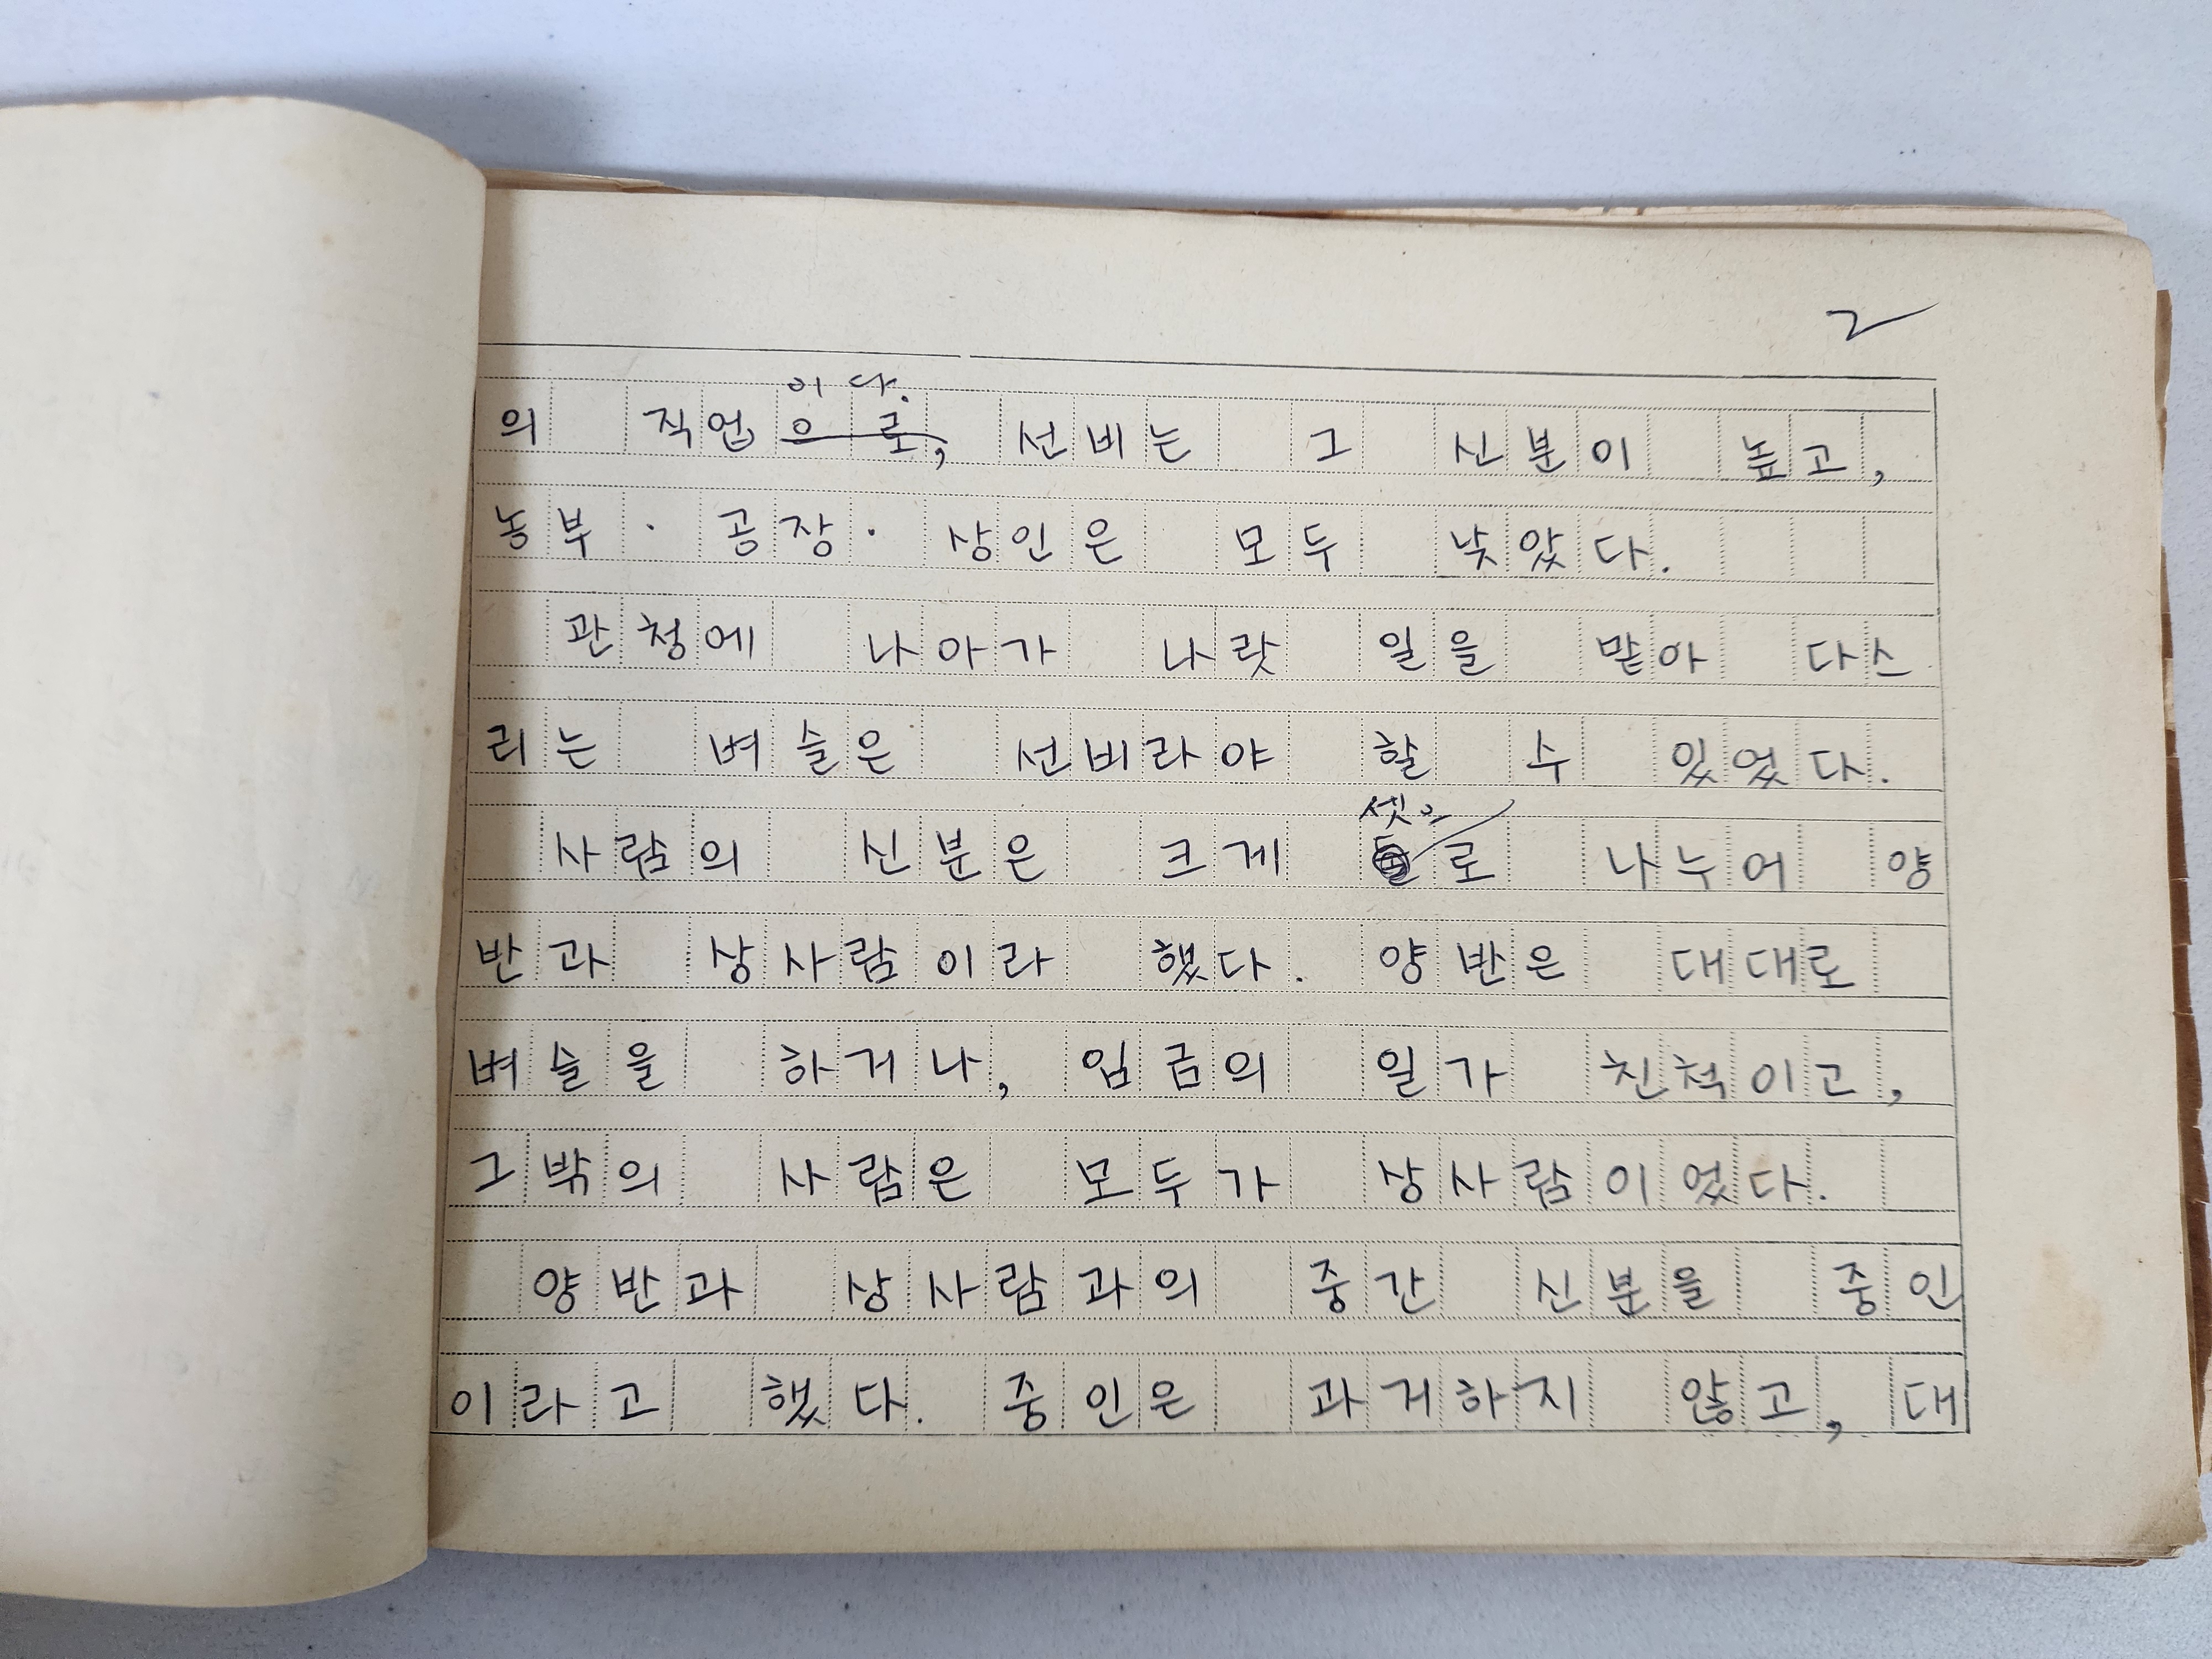 2
이다.
의 직업으로, 선비는 그 신분이 높고,
농부·공장·상인은 모두 낮았다.
관청에 나아가 나랏일을 맡아 다스
리는 벼슬은 선비라야 할 수 있었다.
셋으
사람의 신분은 크게 로 나누어 양
반과 상사람이라 했다. 양반은 대대로
벼슬을 하거나, 임금의 일가 친척이고,
그 밖의 사람은 모두가 상사람이었다.
양반과 상사람과의 중간 신분을 중인
이라고 했다. 중인은 과거하지 않고, 대